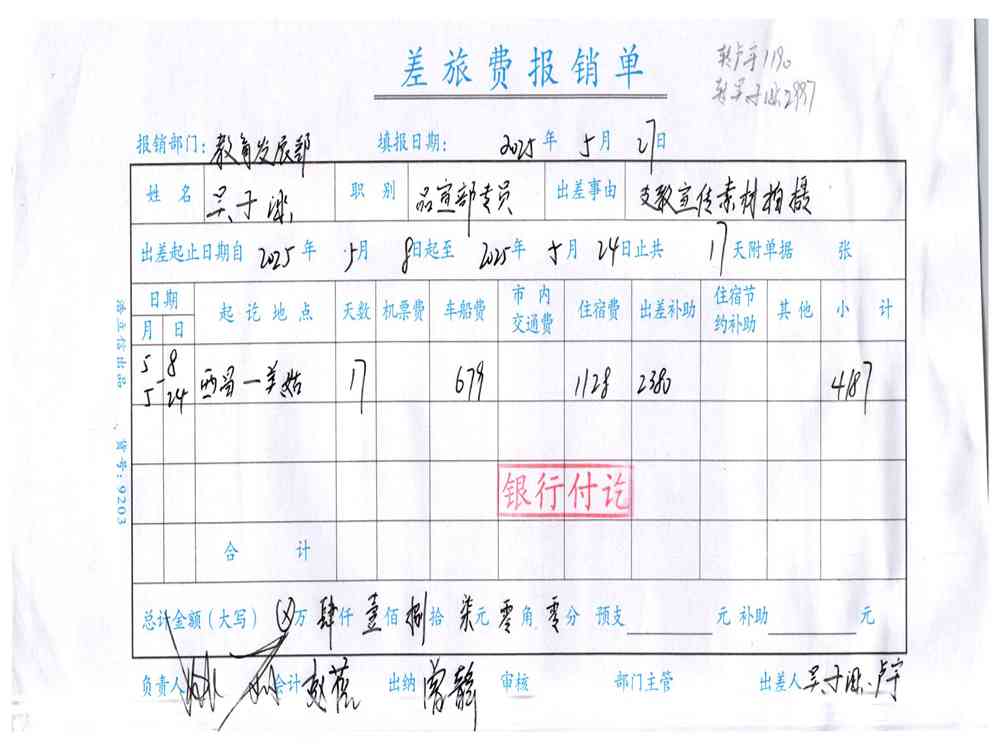 差旅费报销单
转卢宇1190
转吴子 2997
报销部门: 教育发展部 填报日期: 2025年 5月 27日
姓名 吴子 职别 品宣部专员 出差事由 支教宣传素材拍摄
出差起止日期自 2025年 5月 8日起至 2025年 5月 24日止共 17天附单据 张
日期 起讫地点 天数 机票费 车船费 市内交通费 住宿费 出差补助 住宿节约补助 其他 小计
月 日
5 8 - 5 24 西昌—美姑 17 679 1128 2380 4187
银行付讫
合计
总计金额(大写) ⊗万 肆仟 壹佰 捌拾 柒元 零角 零分 预支 元 补助 元
负责人 会计 出纳 曾静 审核 部门主管 出差人 吴子 、卢宇
浩立信出品 货号:9203